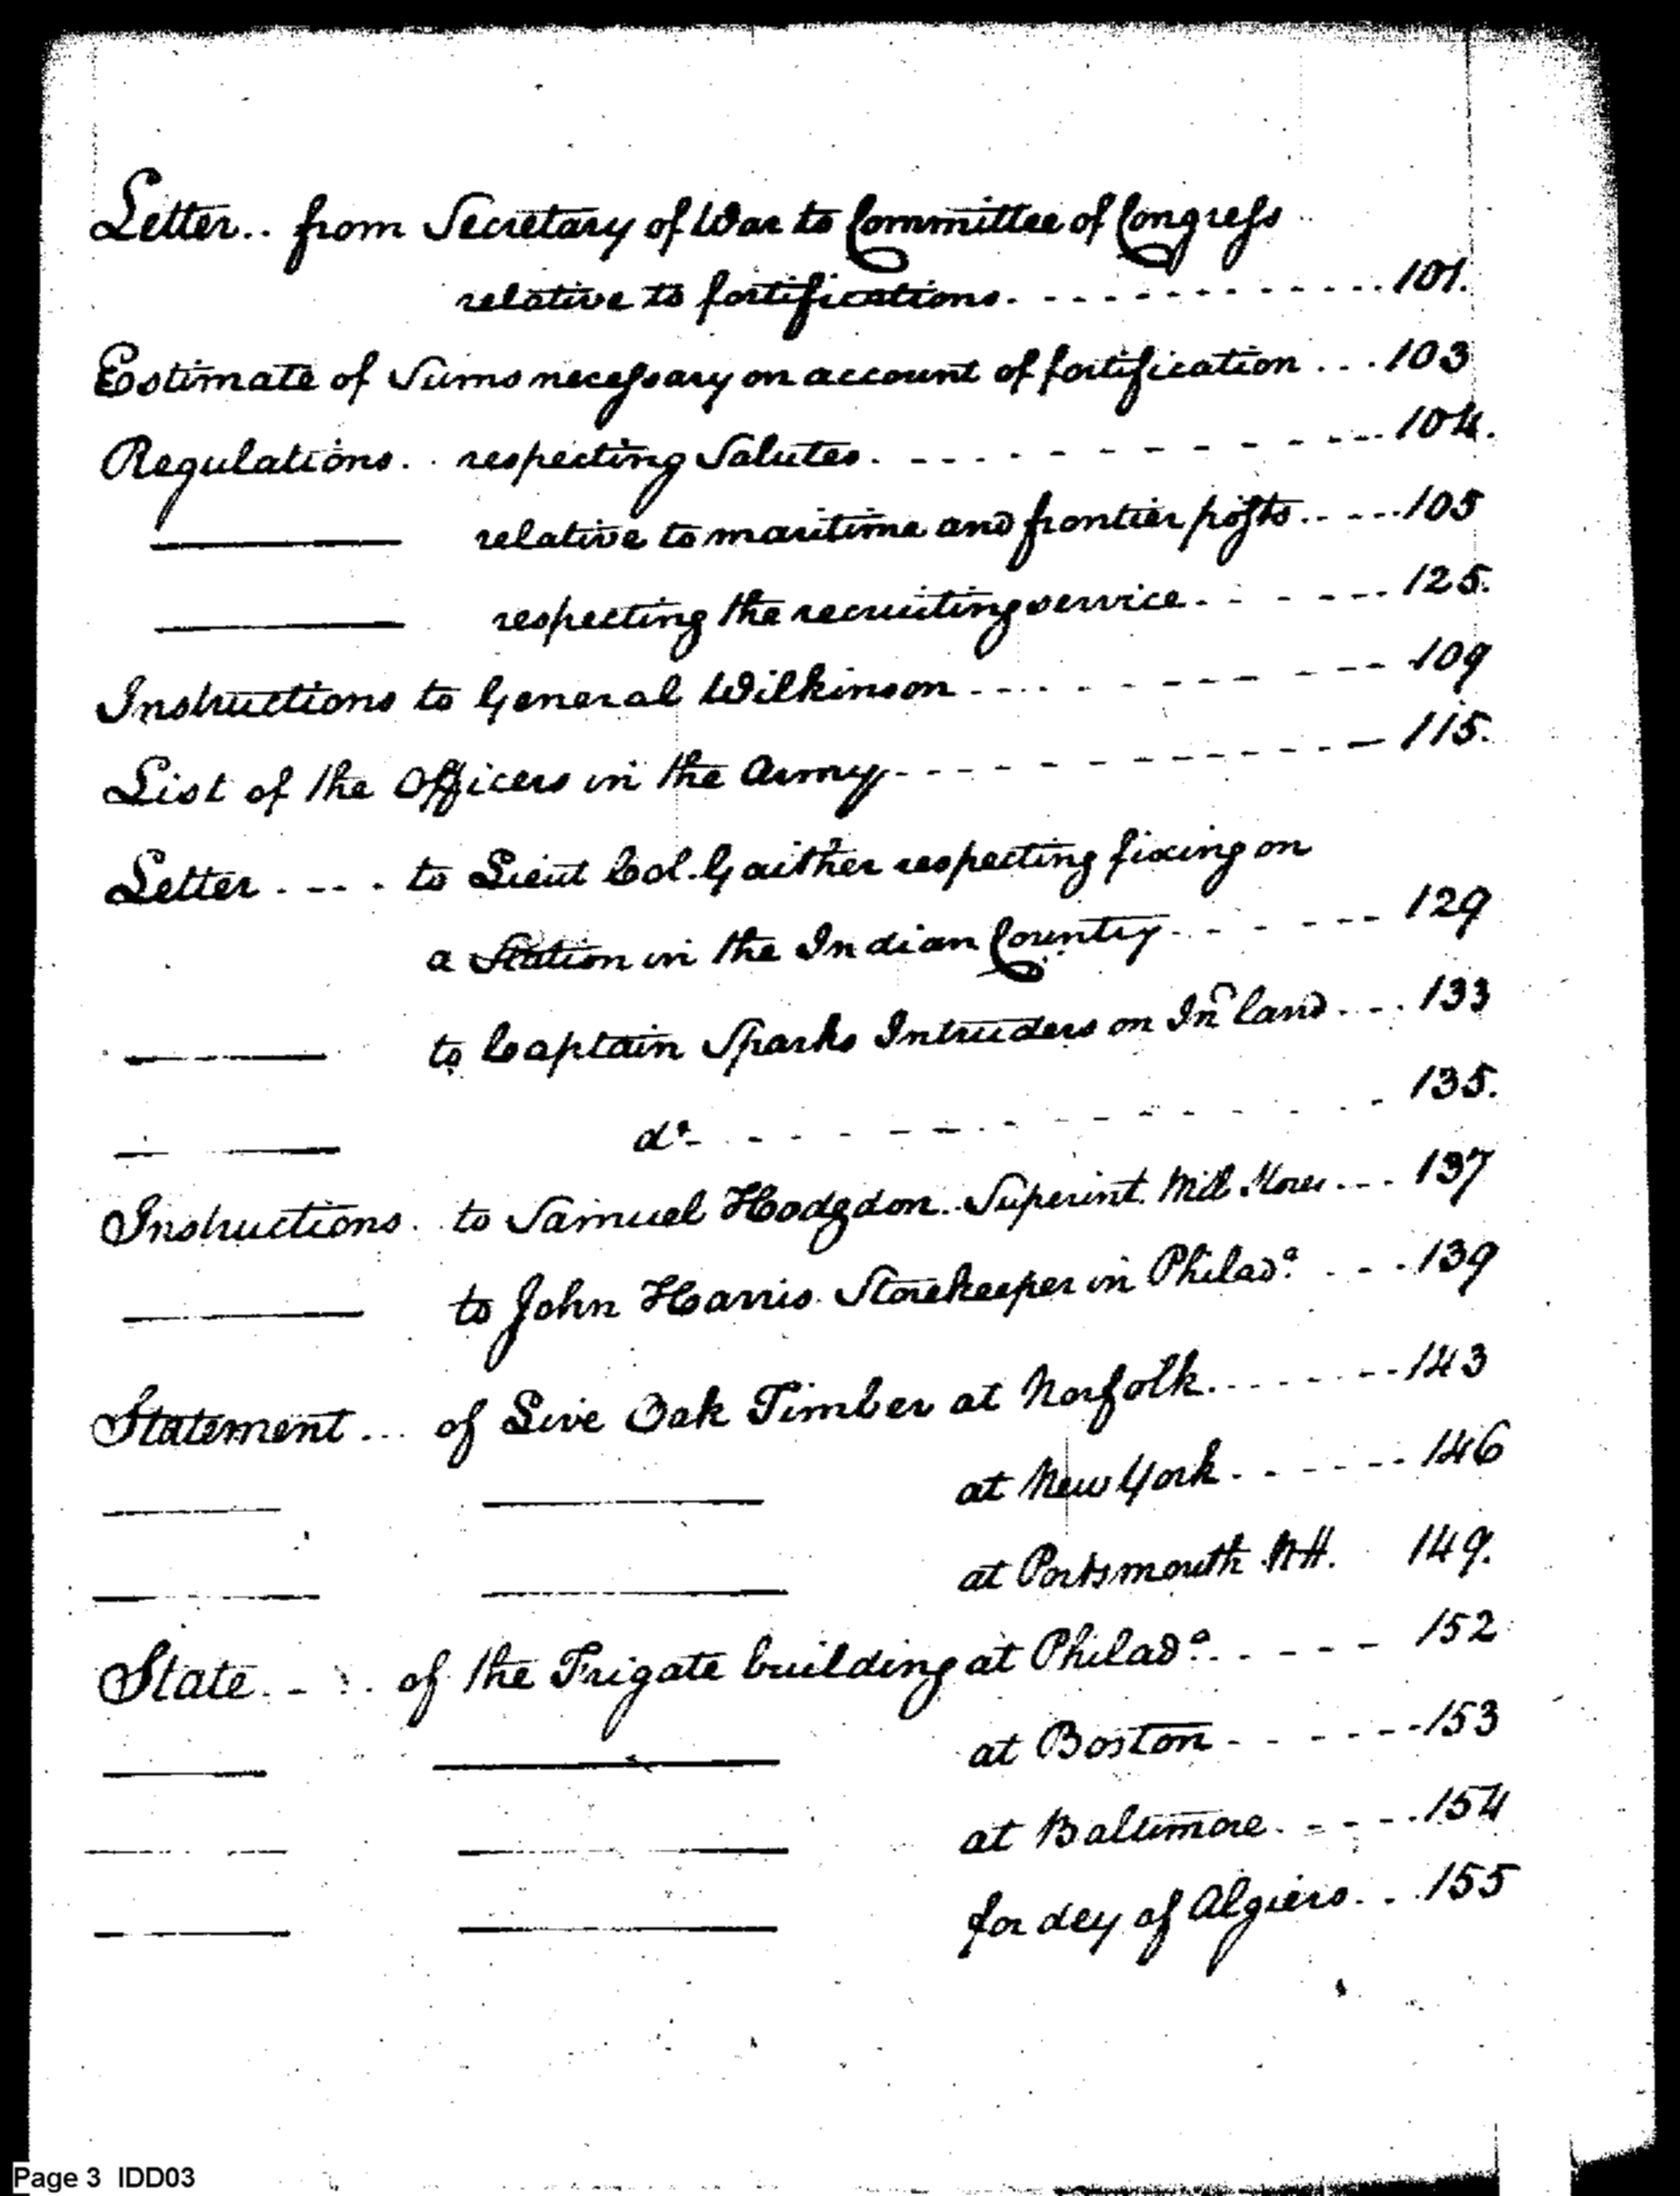 Letter.. from Secretary of War to Committee of Congress
relative to fortifications. - - - - - - - - - - - - 101.
Estimate of Sums necessary on account of fortification ... 103
Regulations. . respecting Salutes. - - - - - - - - - - 104.
——— relative to maritime and frontier posts. - - - - 105
——— respecting the recruiting service - - - - - - 125.
Instructions to General Wilkinson - - - - - - - - - - 109
List of the Officers in the Army - - - - - - - - - - - 115.
Letter - - - . to Lieut Col. Gaither respecting fixing on
a Station in the Indian Country - - - - - - 129
——— to Captain Sparks Intruders on Inn land - - - 133
——— do - - - - - - - - - - - - 135.
Instructions. to Samuel Hodgdon. Superint. Mil Stores - - - 137
——— to John Harris Storekeeper in Philada. - - - 139
Statement ... of Live Oak Timber at Norfolk - - - - - - - 143
——— ——— at New York - - - - - - 146
——— ——— at Portsmouth NH. 149.
State. - - . of the Frigate building at Philada. - - - - 152
——— ——— at Boston - - - - - - 153
——— ——— at Baltimore - - - - - 154
——— ——— for dey of Algiers. . . 155
Page 3 IDD03